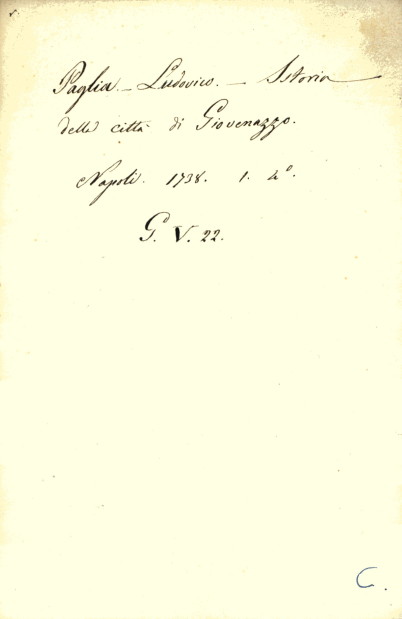 Paglia - Ludovico. - Istoria
della città di Giovenazzo.
Napoli. 1738. 1. 4º.
G. V. 22.
C.